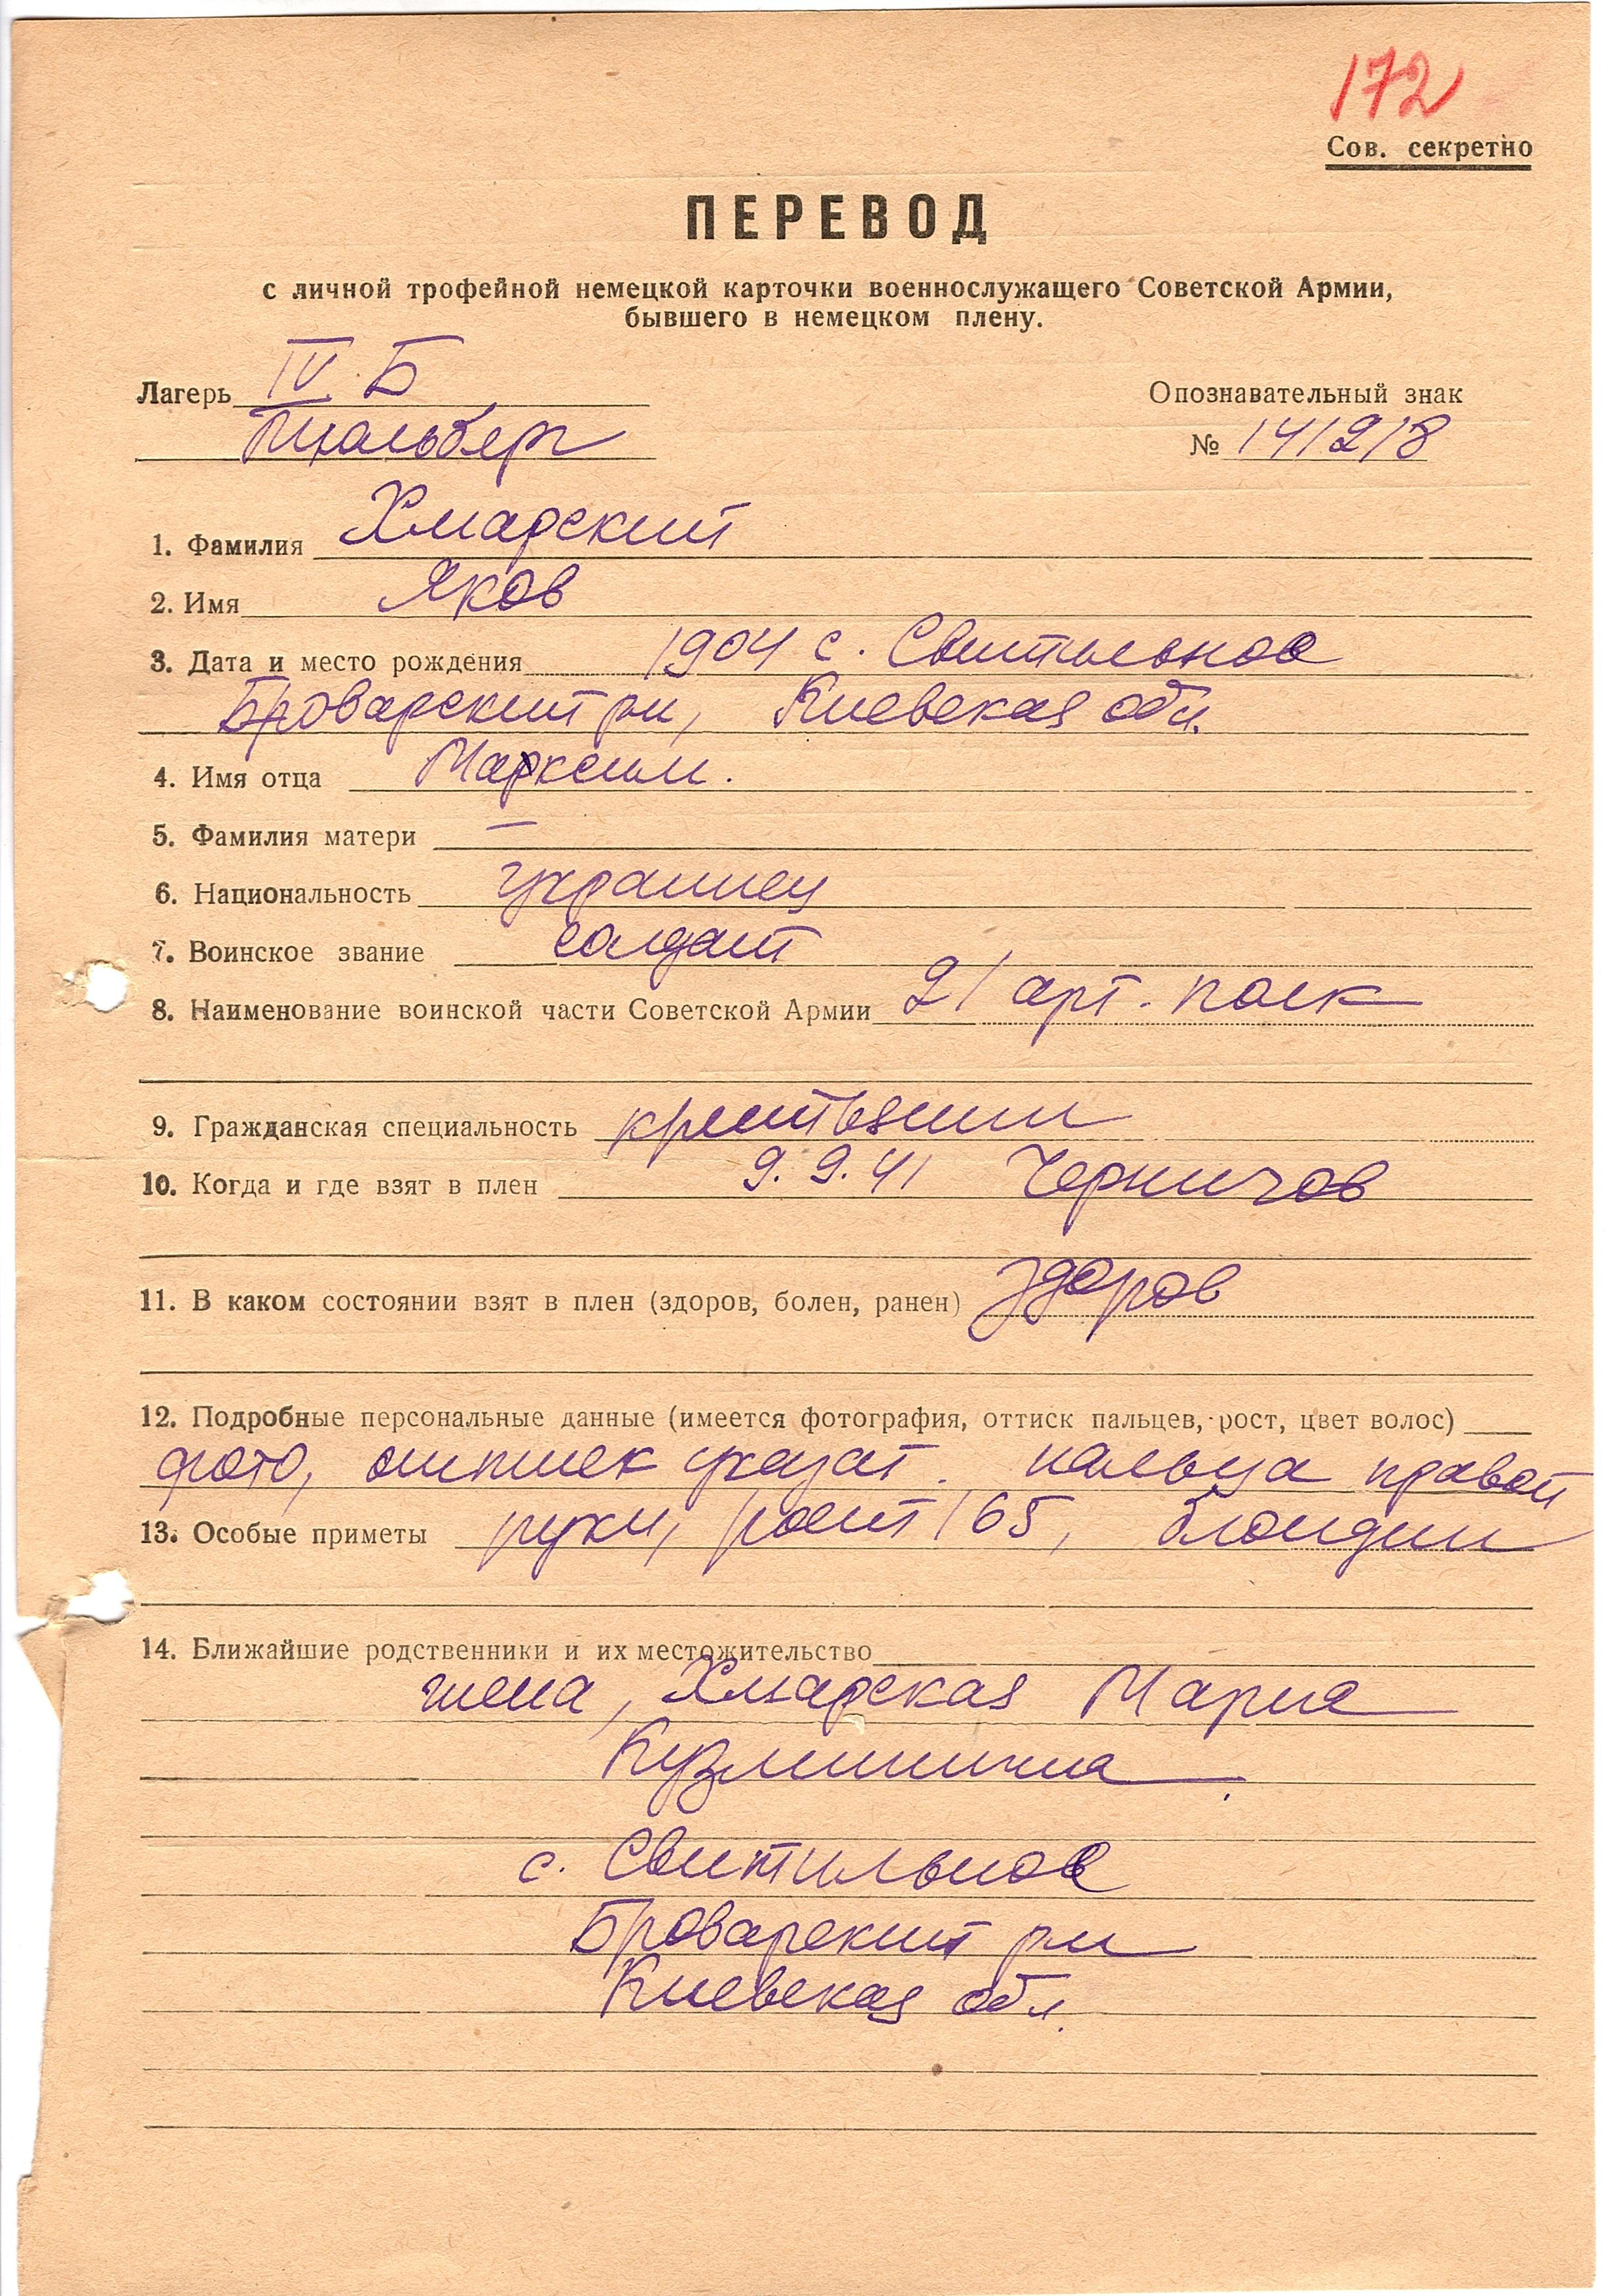 172
Сов. секретно
ПЕРЕВОД
с личной трофейной немецкой карточки военнослужащего Советской Армии,
бывшего в немецком плену.
Лагерь IV Б
Опознавательный знак
Мюльберг
№ 141218
1. Фамилия Хмарский
2. Имя Яков
3. Дата и место рождения 1904 с. Свитильнов
Броварский рн, Киевская обл.
4. Имя отца Марксим.
5. Фамилия матери —
6. Национальность украинец
7. Воинское звание солдат
8. Наименование воинской части Советской Армии 21 арт. полк
9. Гражданская специальность крестьянин
10. Когда и где взят в плен 9.9.41 Чернигов
11. В каком состоянии взят в плен (здоров, болен, ранен) здоров
12. Подробные персональные данные (имеется фотография, оттиск пальцев, рост, цвет волос)
фото, оттиск указат. пальца правой
13. Особые приметы руки, рост 165, блондин
14. Ближайшие родственники и их местожительство
жена, Хмарская Мария
Кузминична
с. Свитильнов
Броварский рн
Киевская обл.